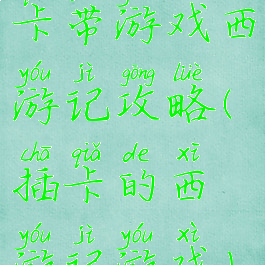 卡带游戏西
yóu jì gōng lüè
游记攻略(
chā qiǎ de xī
插卡的西
yóu jì yóu xì
游记游戏)